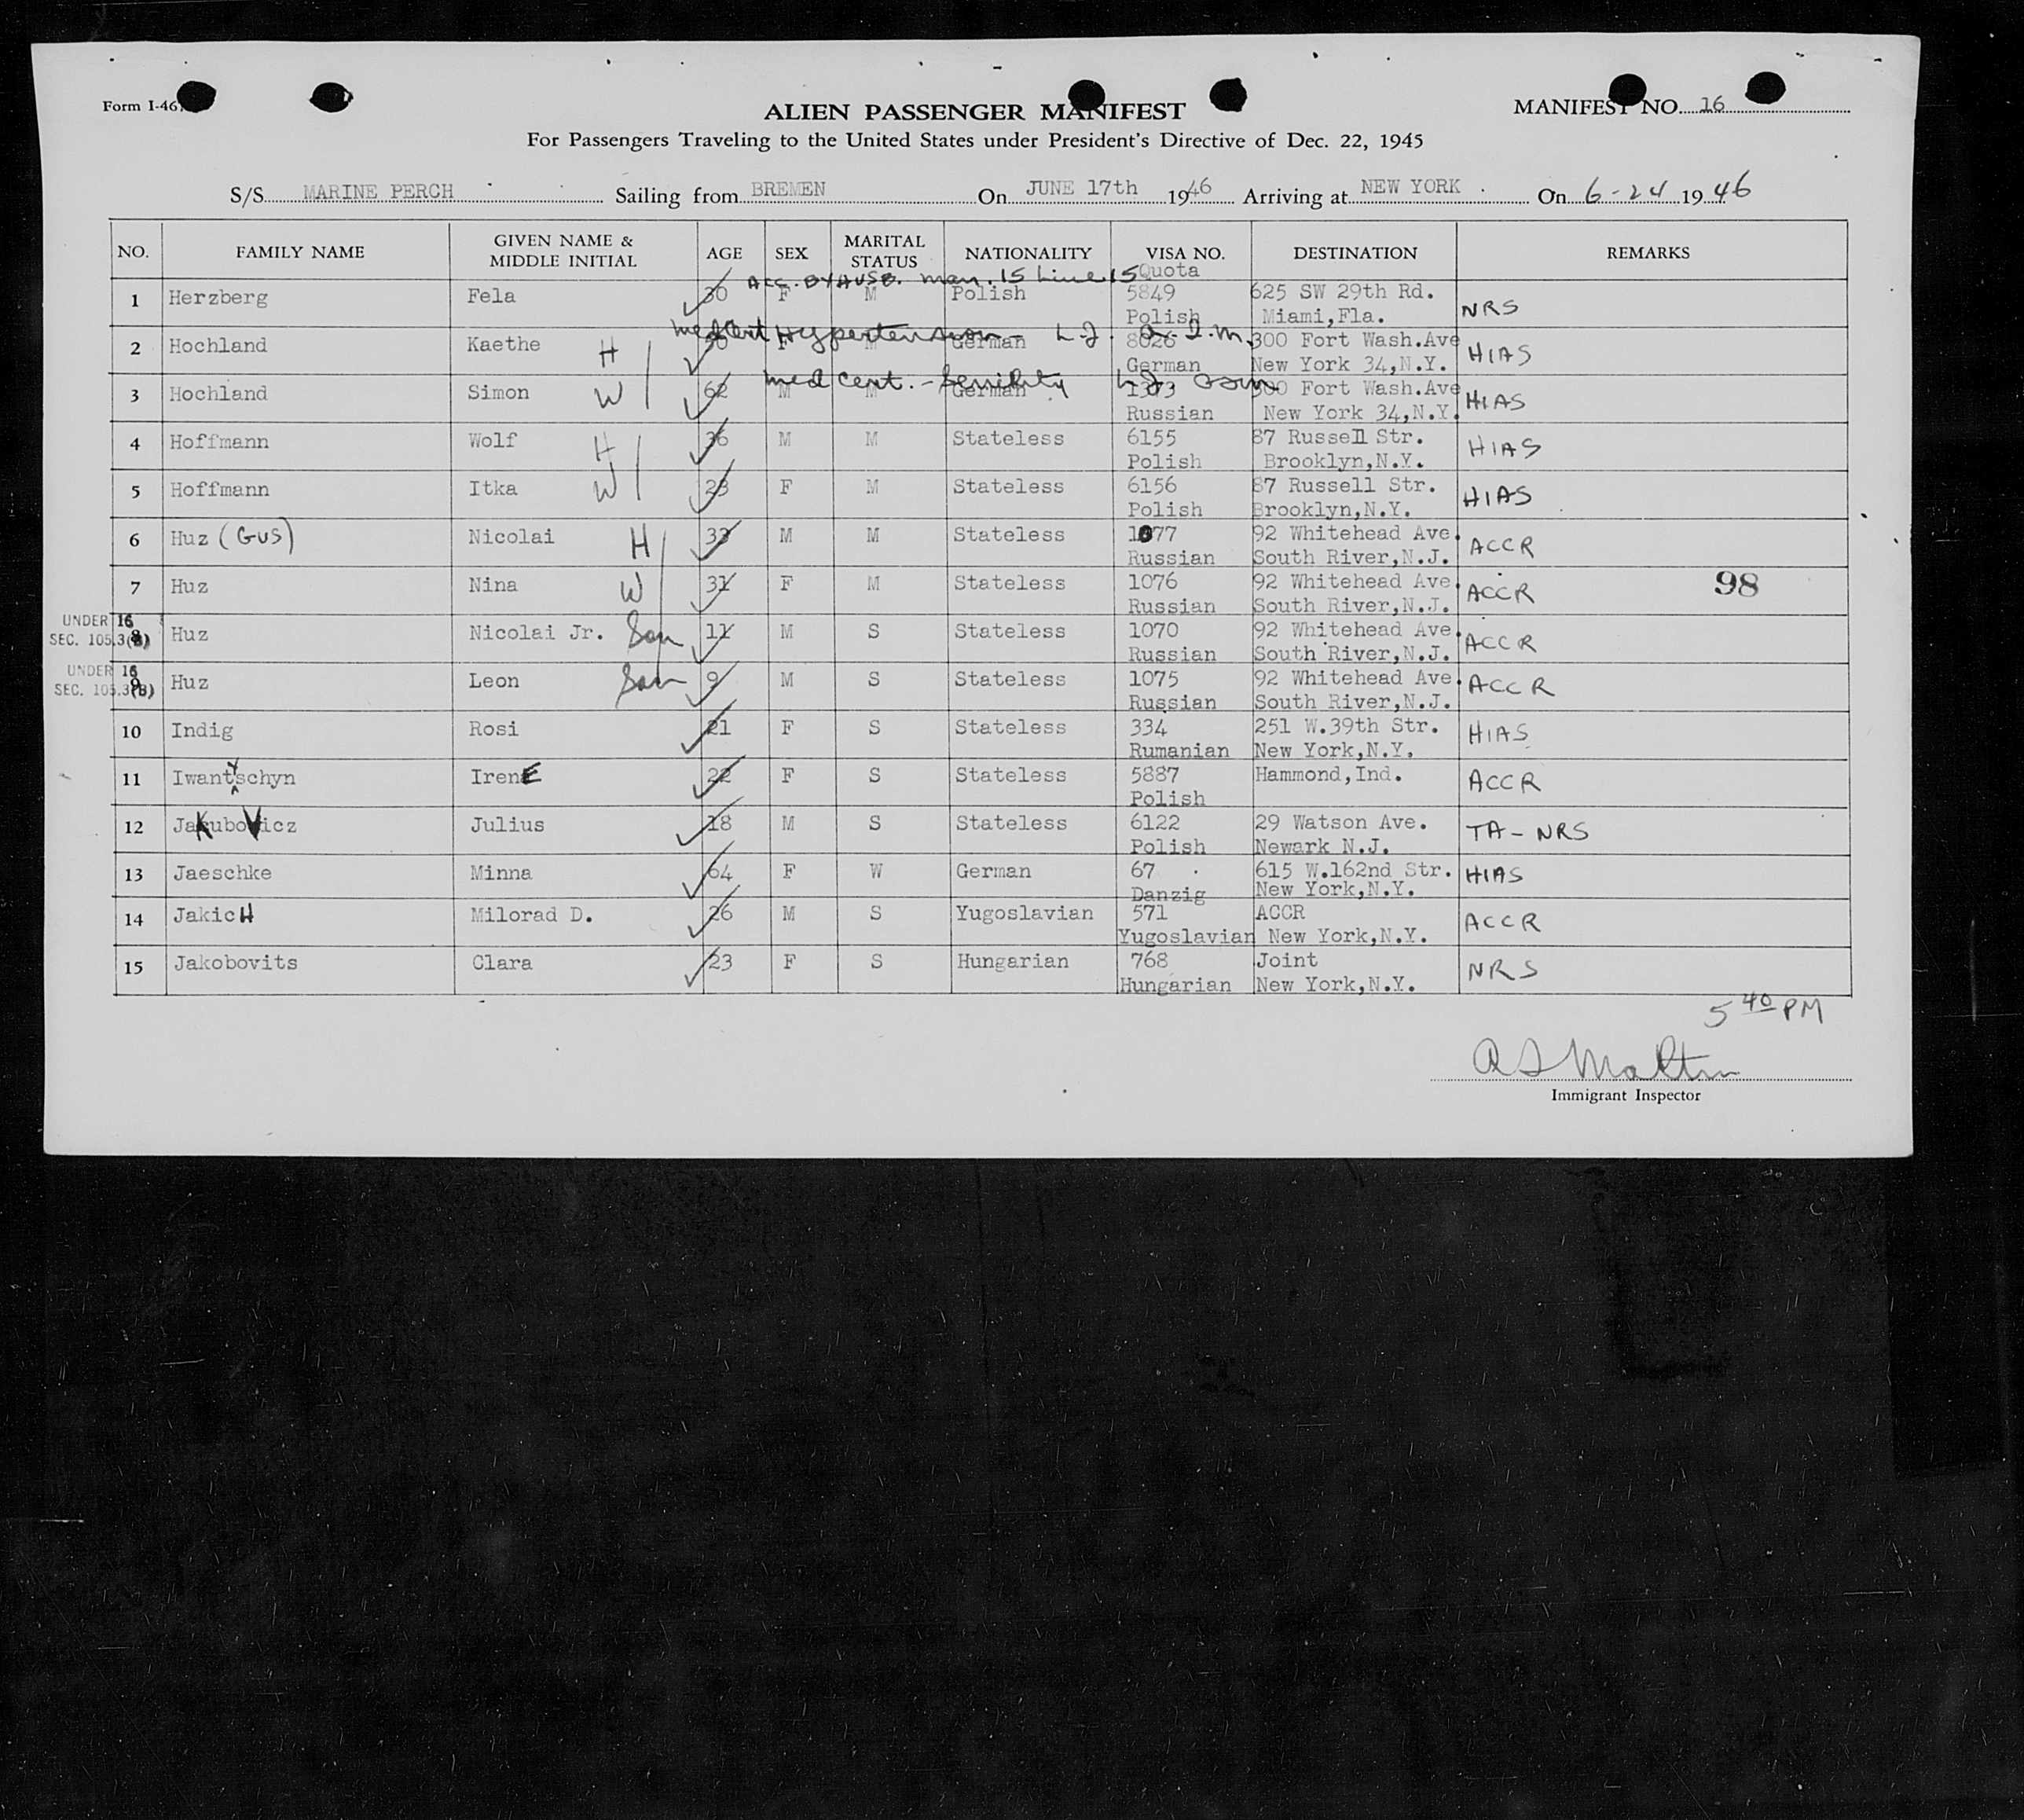 Form I-46
ALIEN PASSENGER MANIFEST
MANIFEST NO. 16
For Passengers Traveling to the United States under President's Directive of Dec. 22, 1945
S/S MARINE PERCH Sailing from BREMEN On JUNE 17th 1946 Arriving at NEW YORK On 6-24 1946
NO. FAMILY NAME GIVEN NAME & MIDDLE INITIAL AGE SEX MARITAL STATUS NATIONALITY VISA NO. DESTINATION REMARKS
Acc. BY HUSB. man. 15 Line 15 Quota
1 Herzberg Fela 30 F M Polish 5849 625 SW 29th Rd. NRS
Polish Miami,Fla.
med cert Hypertension
2 Hochland Kaethe H F M German 8026 300 Fort Wash.Ave HIAS
German New York 34,N.Y.
med cert. - Senility
3 Hochland Simon W 62 M M German 1373 300 Fort Wash.Ave HIAS
Russian New York 34,N.Y.
4 Hoffmann Wolf H 36 M M Stateless 6155 87 Russell Str. HIAS
Polish Brooklyn,N.Y.
5 Hoffmann Itka W 23 F M Stateless 6156 87 Russell Str. HIAS
Polish Brooklyn,N.Y.
6 Huz (GUS) Nicolai H 33 M M Stateless 1077 92 Whitehead Ave. ACCR
Russian South River,N.J.
7 Huz Nina W 31 F M Stateless 1076 92 Whitehead Ave. ACCR 98
Russian South River,N.J.
UNDER 16
SEC. 105.3(B)
8 Huz Nicolai Jr. Son 11 M S Stateless 1070 92 Whitehead Ave. ACCR
Russian South River,N.J.
UNDER 16
SEC. 105.3(B)
9 Huz Leon Son 9 M S Stateless 1075 92 Whitehead Ave. ACCR
Russian South River,N.J.
10 Indig Rosi 21 F S Stateless 334 251 W.39th Str. HIAS
Rumanian New York,N.Y.
11 Iwantyschyn IrenE 22 F S Stateless 5887 Hammond,Ind. ACCR
Polish
12 JaKuboVicz Julius 18 M S Stateless 6122 29 Watson Ave. TA - NRS
Polish Newark N.J.
13 Jaeschke Minna 64 F W German 67 615 W.162nd Str. HIAS
Danzig New York,N.Y.
14 JakicH Milorad D. 26 M S Yugoslavian 571 ACCR ACCR
Yugoslavian New York,N.Y.
15 Jakobovits Clara 23 F S Hungarian 768 Joint NRS
Hungarian New York,N.Y.
5 40 PM
Immigrant Inspector